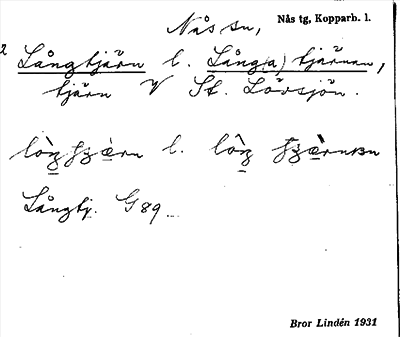 Nås sn, Nås tg, Kopparb. l.
2
Långtjärn l. Lång(a) tjärnen,
tjärn V St. Lövsjön.
Långtj. G 89
Bror Lindén 1931